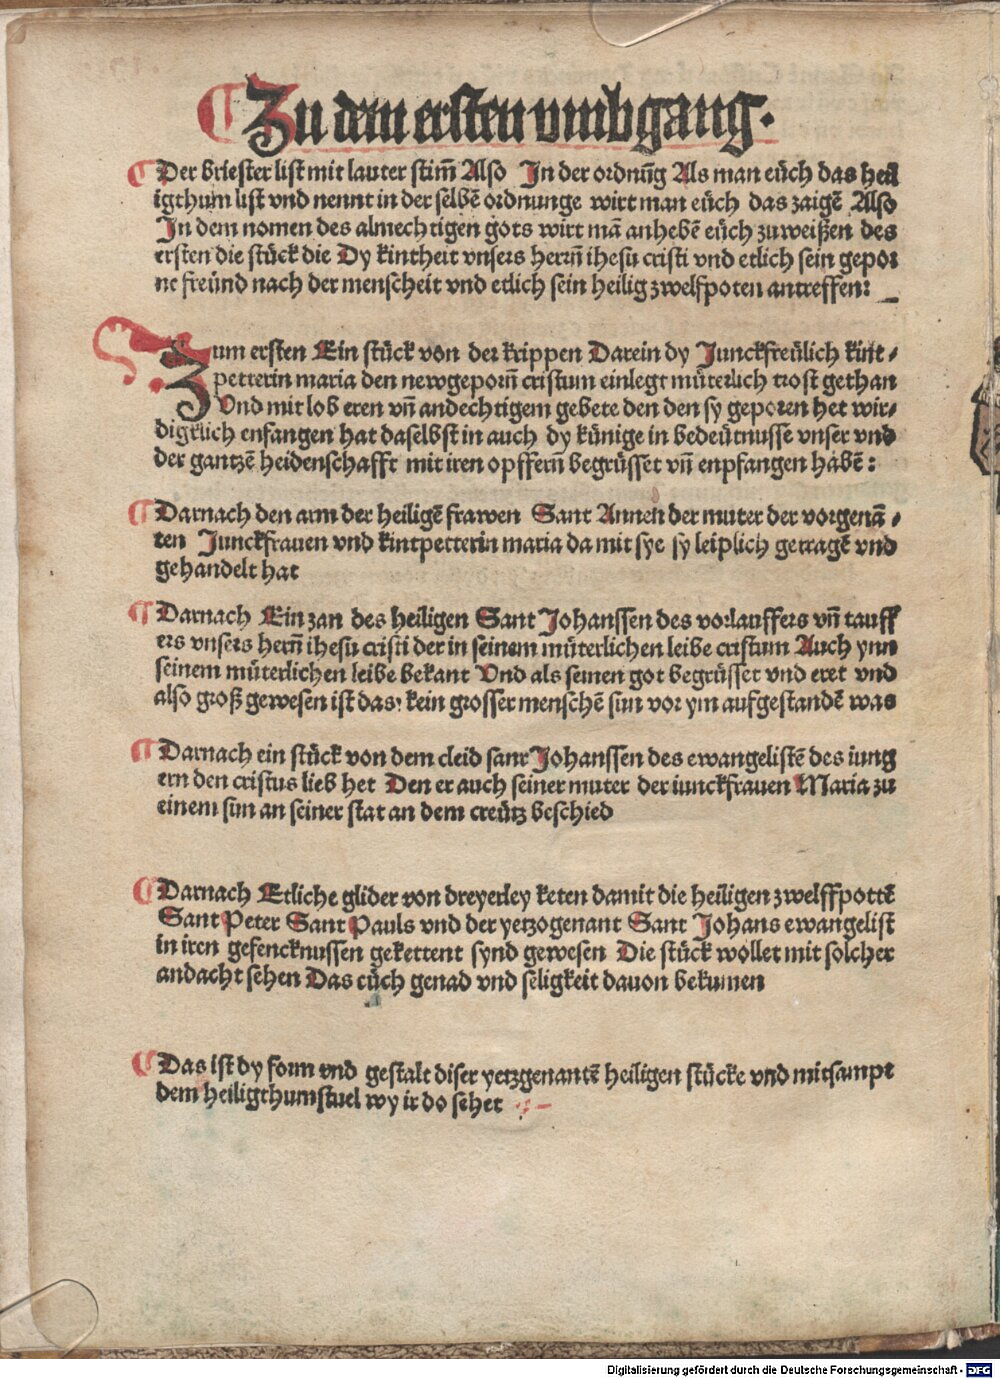 Zu dem ersten vmbgang.
Der briester list mit lauter stim̄ Also In der ordnūg Als man eüch das heil
igthum list vnd nennt in der selbē ordnunge wirt man eüch das zaigē Also
In dem nomen des almechtigen gots wirt mā anhebē eüch zuweißen des
ersten die stück die Dy kintheit vnsers herrn̄ ihesu cristi vnd etlich sein gepor
ne freünd nach der menscheit vnd etlich sein heilig zwelfpoten antreffen:
Zum ersten Ein stück von der krippen Darein dy Junckfreülich kint⸗
petterin maria den newgeporn̄ cristum einlegt müterlich trost gethan
Vnd mit lob eren vn̄ andechtigem gebete den den sy geporen het wir⸗
digklich enfangen hat daselbst in auch dy künige in bedeütnusse vnser vnd
der gantzē heidenschafft mit iren opffern̄ begrüsset vn̄ enpfangen habē:
Darnach den arm der heiligē frawen Sant Annen der muter der vorgenā⸗
ten Junckfrauen vnd kintpetterin maria da mit sye sy leiplich getragē vnd
gehandelt hat
Darnach Ein zan des heiligen Sant Johanssen des vorlauffers vn̄ tauff
ers vnsers hern̄ ihesu cristi der in seinem müterlichen leibe cristum Auch ynn
seinem müterlichen leibe bekant Vnd als seinen got begrüsset vnd eret vnd
also groß gewesen ist das kein grosser menschē sun vor ym aufgestandē was
Darnach ein stück von dem cleid sant Johanssen des ewangelistē des iung
ern den cristus lieb het Den er auch seiner muter der iunckfrauen Maria zu
einem sun an seiner stat an dem creütz beschied
Darnach Etliche glider von dreyerley keten damit die heiligen zwelffpottē
Sant Peter Sant Pauls vnd der yetzogenant Sant Johans ewangelist
in iren gefencknussen gekettent synd gewesen Die stück wollet mit solcher
andacht sehen Das eüch genad vnd seligkeit dauon bekumen
Das ist dy form vnd gestalt diser yetzgenantē heiligen stücke vnd mitsampt
dem heiligthumstuel wy ir do sehet
Digitalisierung gefördert durch die Deutsche Forschungsgemeinschaft - DFG